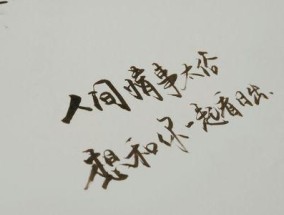 人间情事太俗
想和你一起看日出.